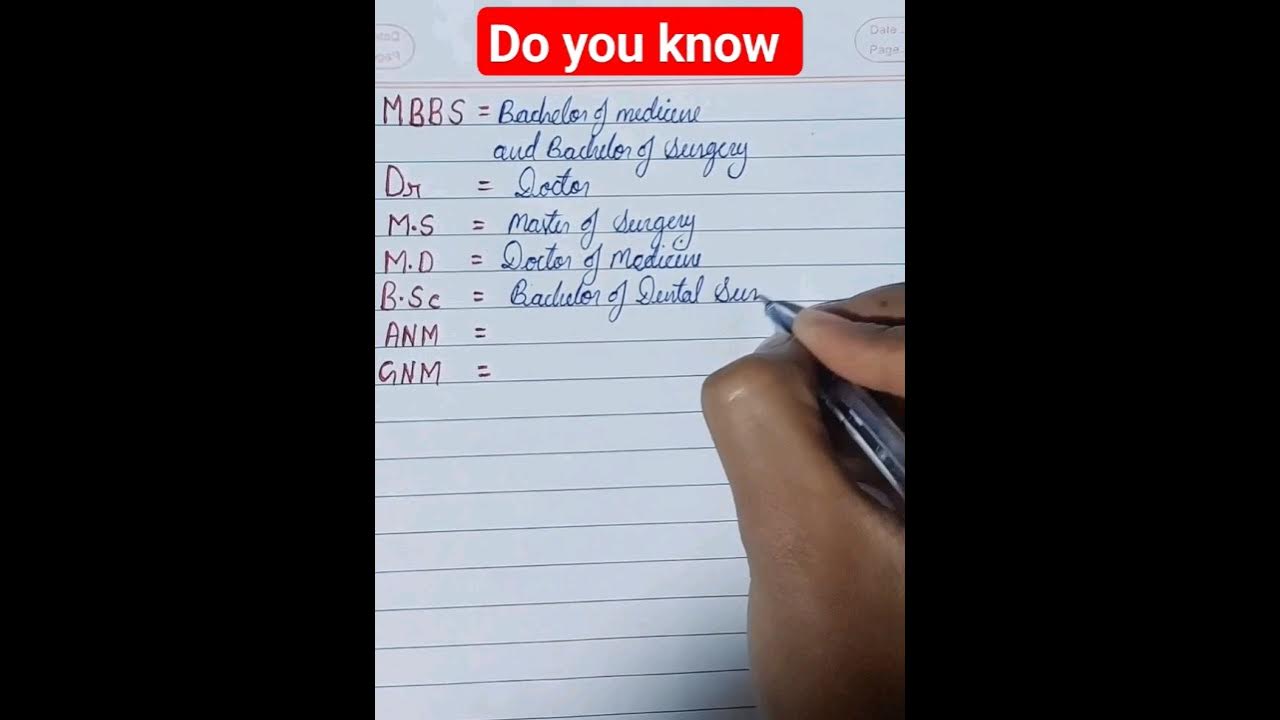 Do you know
Date
Page
MBBS = Bachelor of medicine
and Bachelor of Surgery
Dr = Doctor
M.S = Master of Surgery
M.D = Doctor of Medicine
B.Sc = Bachelor of Dental Sur
ANM =
GNM =